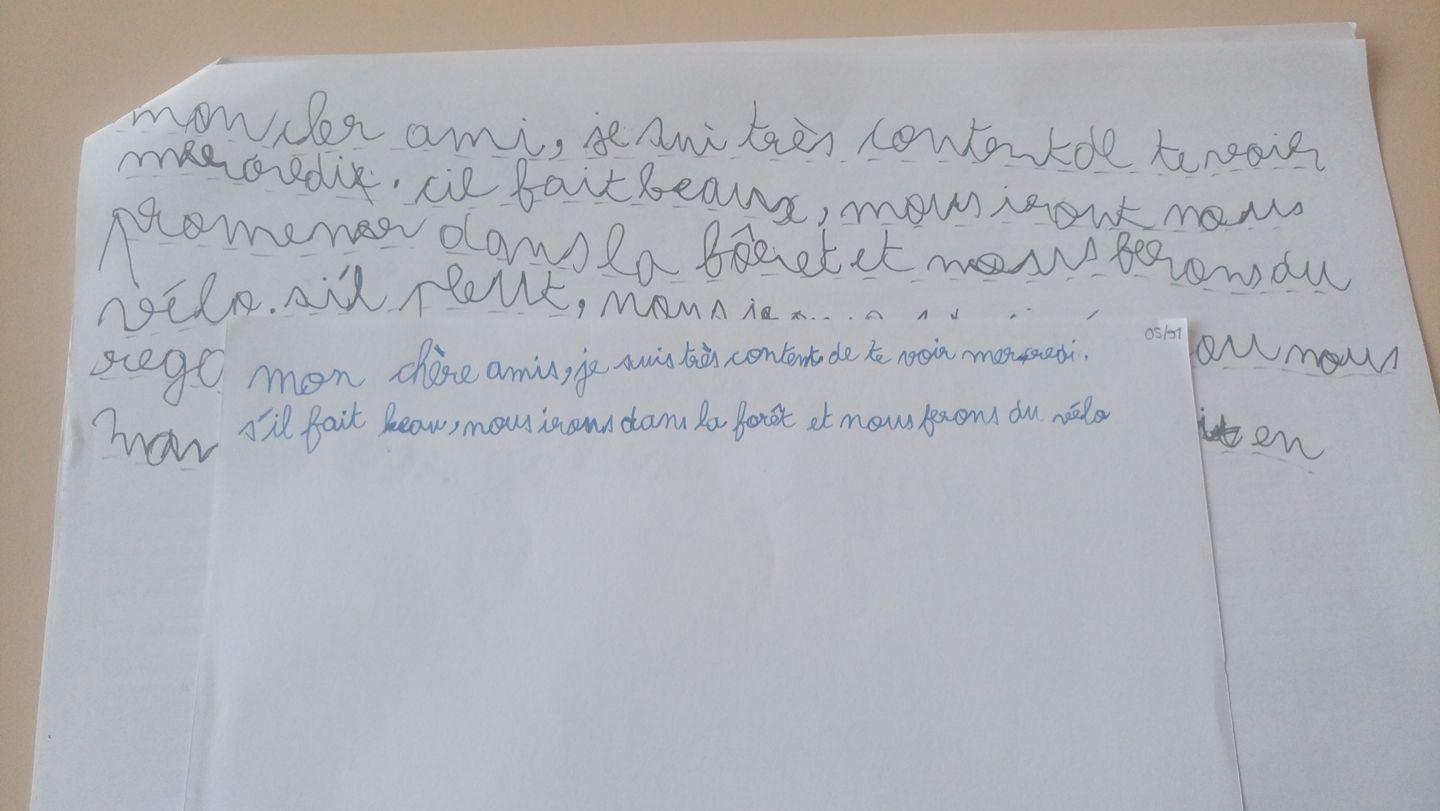 mon cher ami, je sui très content de te voir
mercredix. cil fait beaux, nous iront nous
promener dans la fôret et nous ferons du
vélo. s'il pleut, nous
rega ou nous
man en
05/01
mon chère amis, je suis très content de te voir mercredi.
s'il fait beau, nous irons dans la forêt et nous ferons du vélo